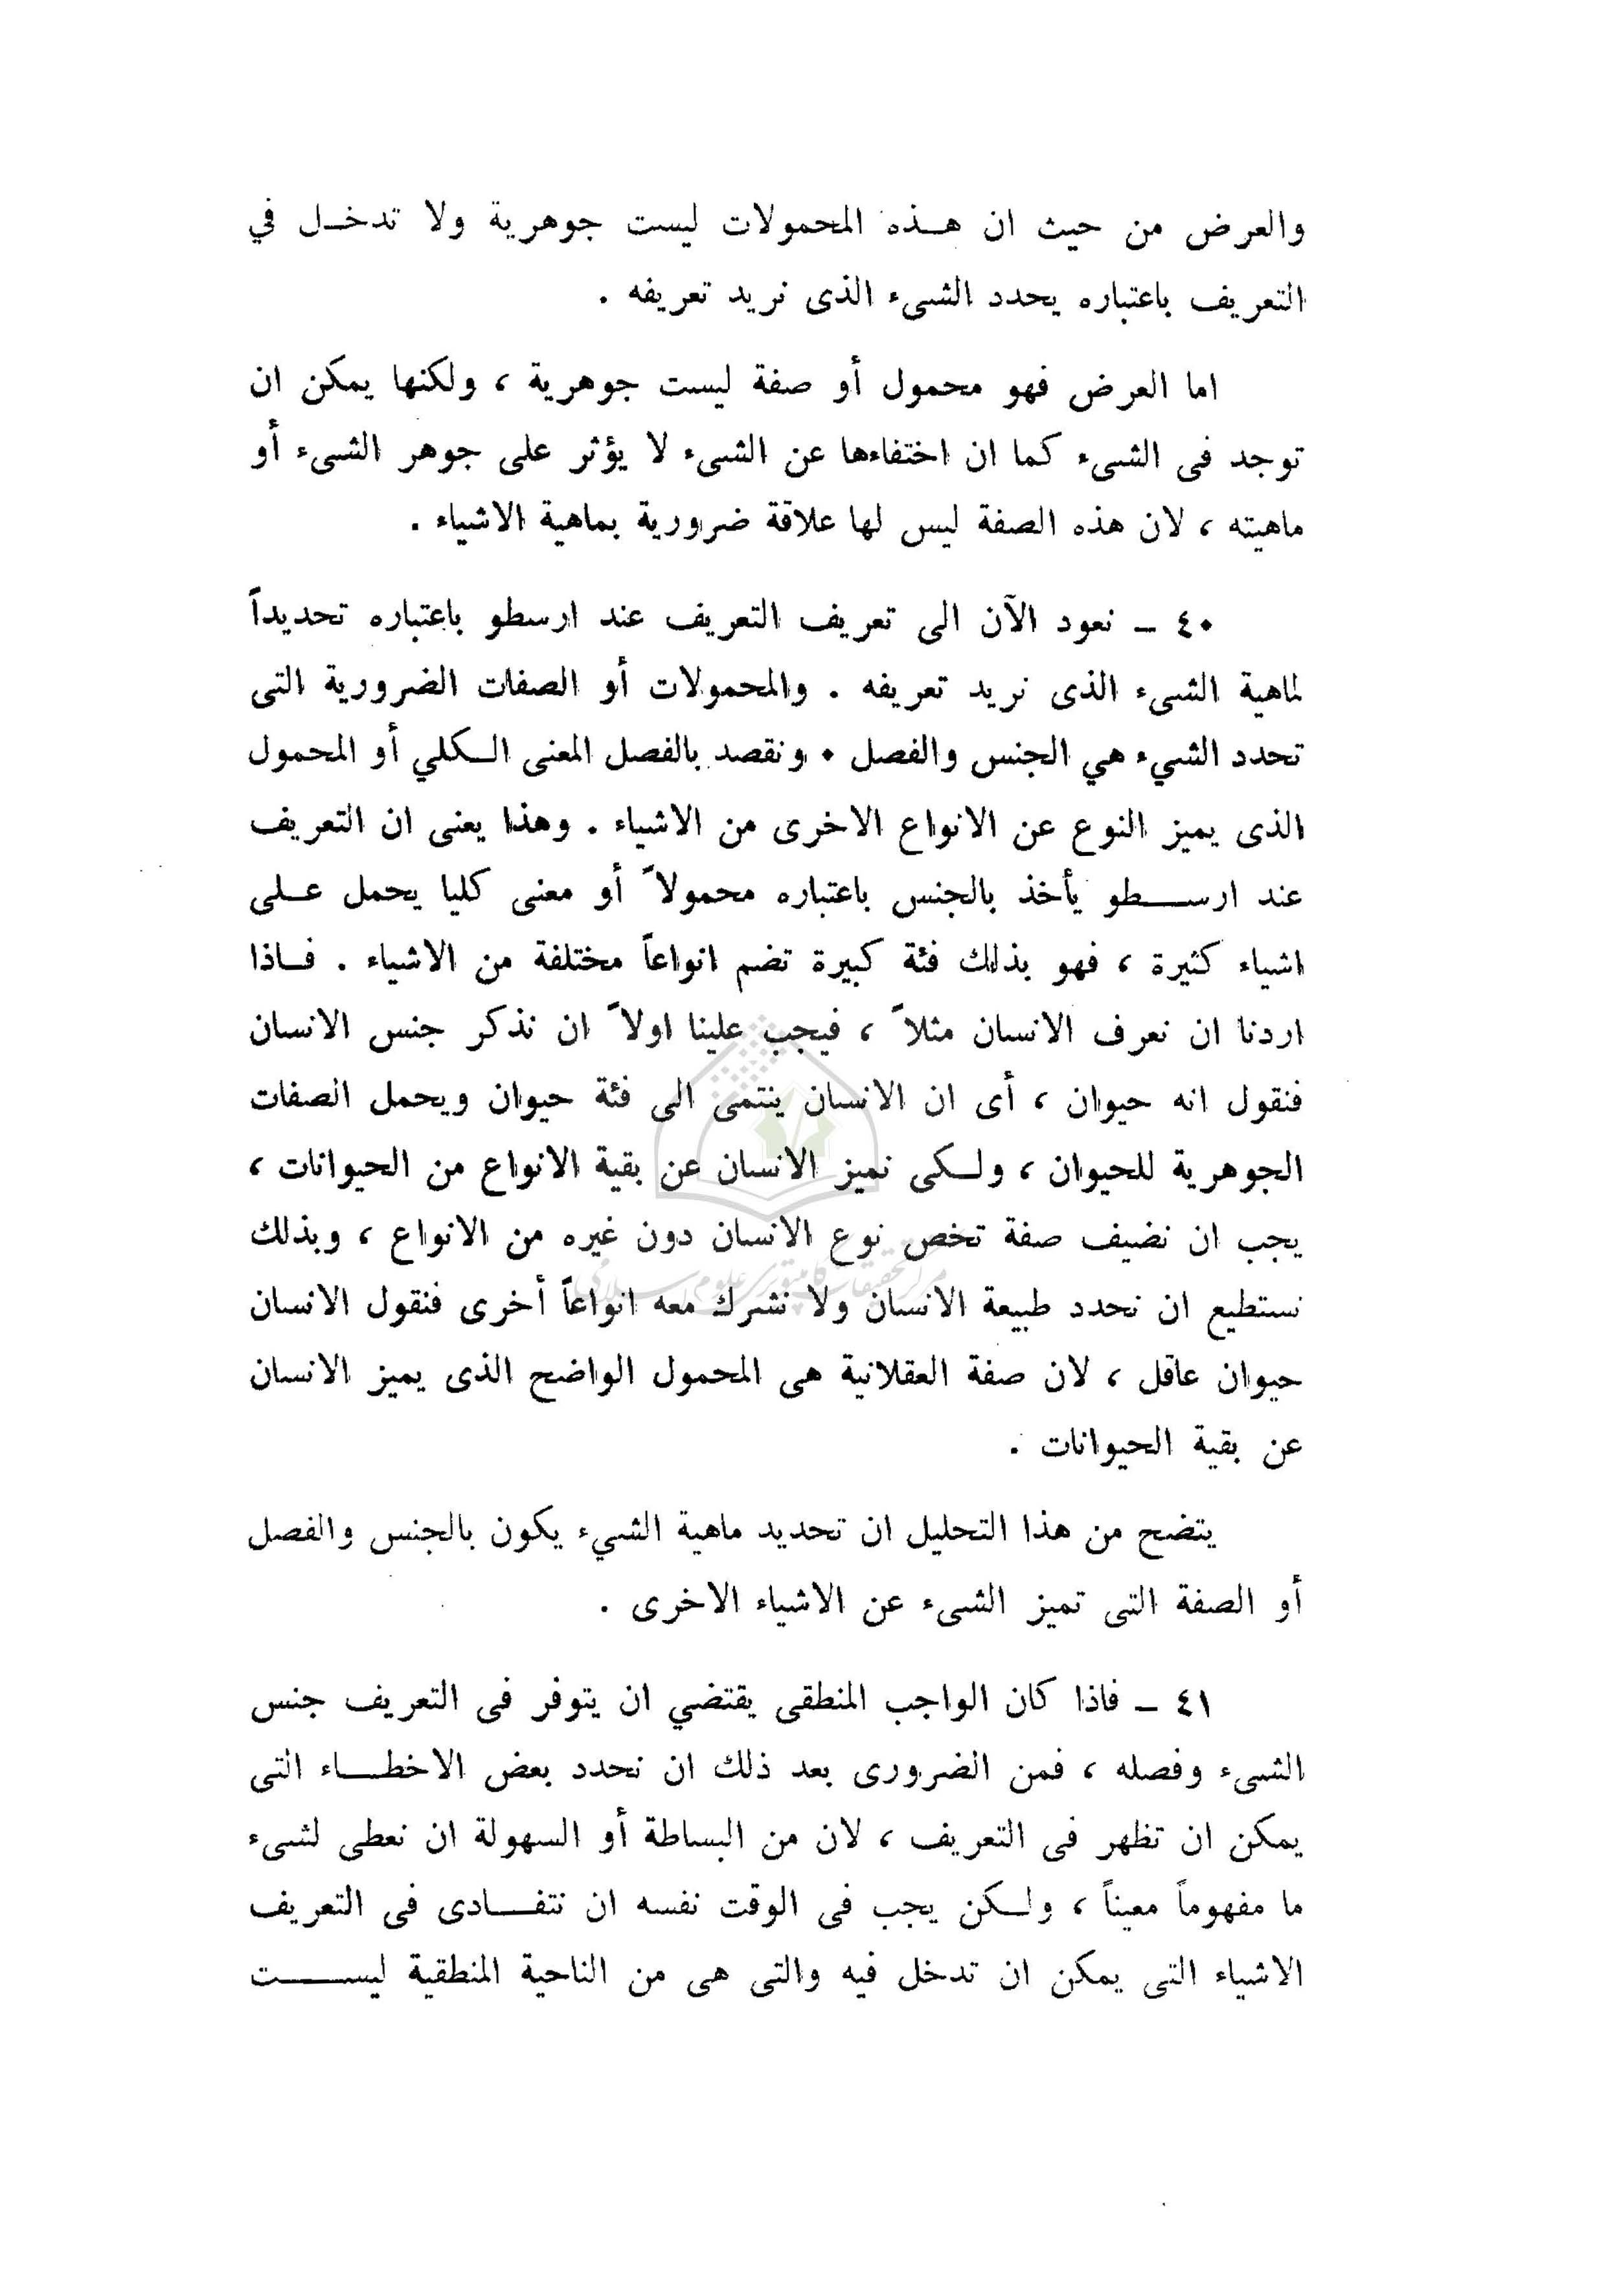 والعرض من حيث ان هـذه المحمولات ليست جوهرية ولا تدخـل في
التعريف باعتباره يحدد الشىء الذى نريد تعريفه .
اما العرض فهو محمول أو صفة ليست جوهرية ، ولكنها يمكن ان
توجد فى الشىء كما ان اختفاءها عن الشىء لا يؤثر على جوهر الشىء أو
ماهيته ، لان هذه الصفة ليس لها علاقة ضرورية بماهية الاشياء .
٤٠ ـ نعود الآن الى تعريف التعريف عند ارسطو باعتباره تحديداً
لماهية الشىء الذى نريد تعريفه . والمحمولات أو الصفات الضرورية التى
تحدد الشيء هي الجنس والفصل ٠ ونقصد بالفصل المعنى الـكلي أو المحمول
الذى يميز النوع عن الانواع الاخرى من الاشياء . وهذا يعنى ان التعريف
عند ارســطو يأخذ بالجنس باعتباره محمولاً أو معنى كليا يحمل عـلى
اشياء كثيرة ، فهو بذلك فئة كبيرة تضم انواعاً مختلفة من الاشياء . فـاذا
اردنا ان نعرف الانسان مثلاً ، فيجب علينا اولاً ان نذكر جنس الانسان
فنقول انه حيوان ، أى ان الانسان ينتمى الى فئة حيوان ويحمل الصفات
الجوهرية للحيوان ، ولـكى نميز الانسان عن بقية الانواع من الحيوانات ،
يجب ان نضيف صفة تخص نوع الانسان دون غيره من الانواع ، وبذلك
مركز تحقيقات كامپيوترى علوم اسلامى
نستطيع ان نحدد طبيعة الانسان ولا نشرك معه انواعاً أخرى فنقول الانسان
حيوان عاقل ، لان صفة العقلانية هى المحمول الواضح الذى يميز الانسان
عن بقية الحيوانات .
يتضح من هذا التحليل ان تحديد ماهية الشيء يكون بالجنس والفصل
أو الصفة التى تميز الشىء عن الاشياء الاخرى .
٤١ ـ فاذا كان الواجب المنطقى يقتضي ان يتوفر فى التعريف جنس
الشىء وفصله ، فمن الضرورى بعد ذلك ان نحدد بعض الاخطــاء التى
يمكن ان تظهر فى التعريف ، لان من البساطة أو السهولة ان نعطى لشىء
ما مفهوماً معيناً ، ولـكن يجب فى الوقت نفسه ان نتفــادى فى التعريف
الاشياء التى يمكن ان تدخل فيه والتى هى من الناحية المنطقية ليســـت